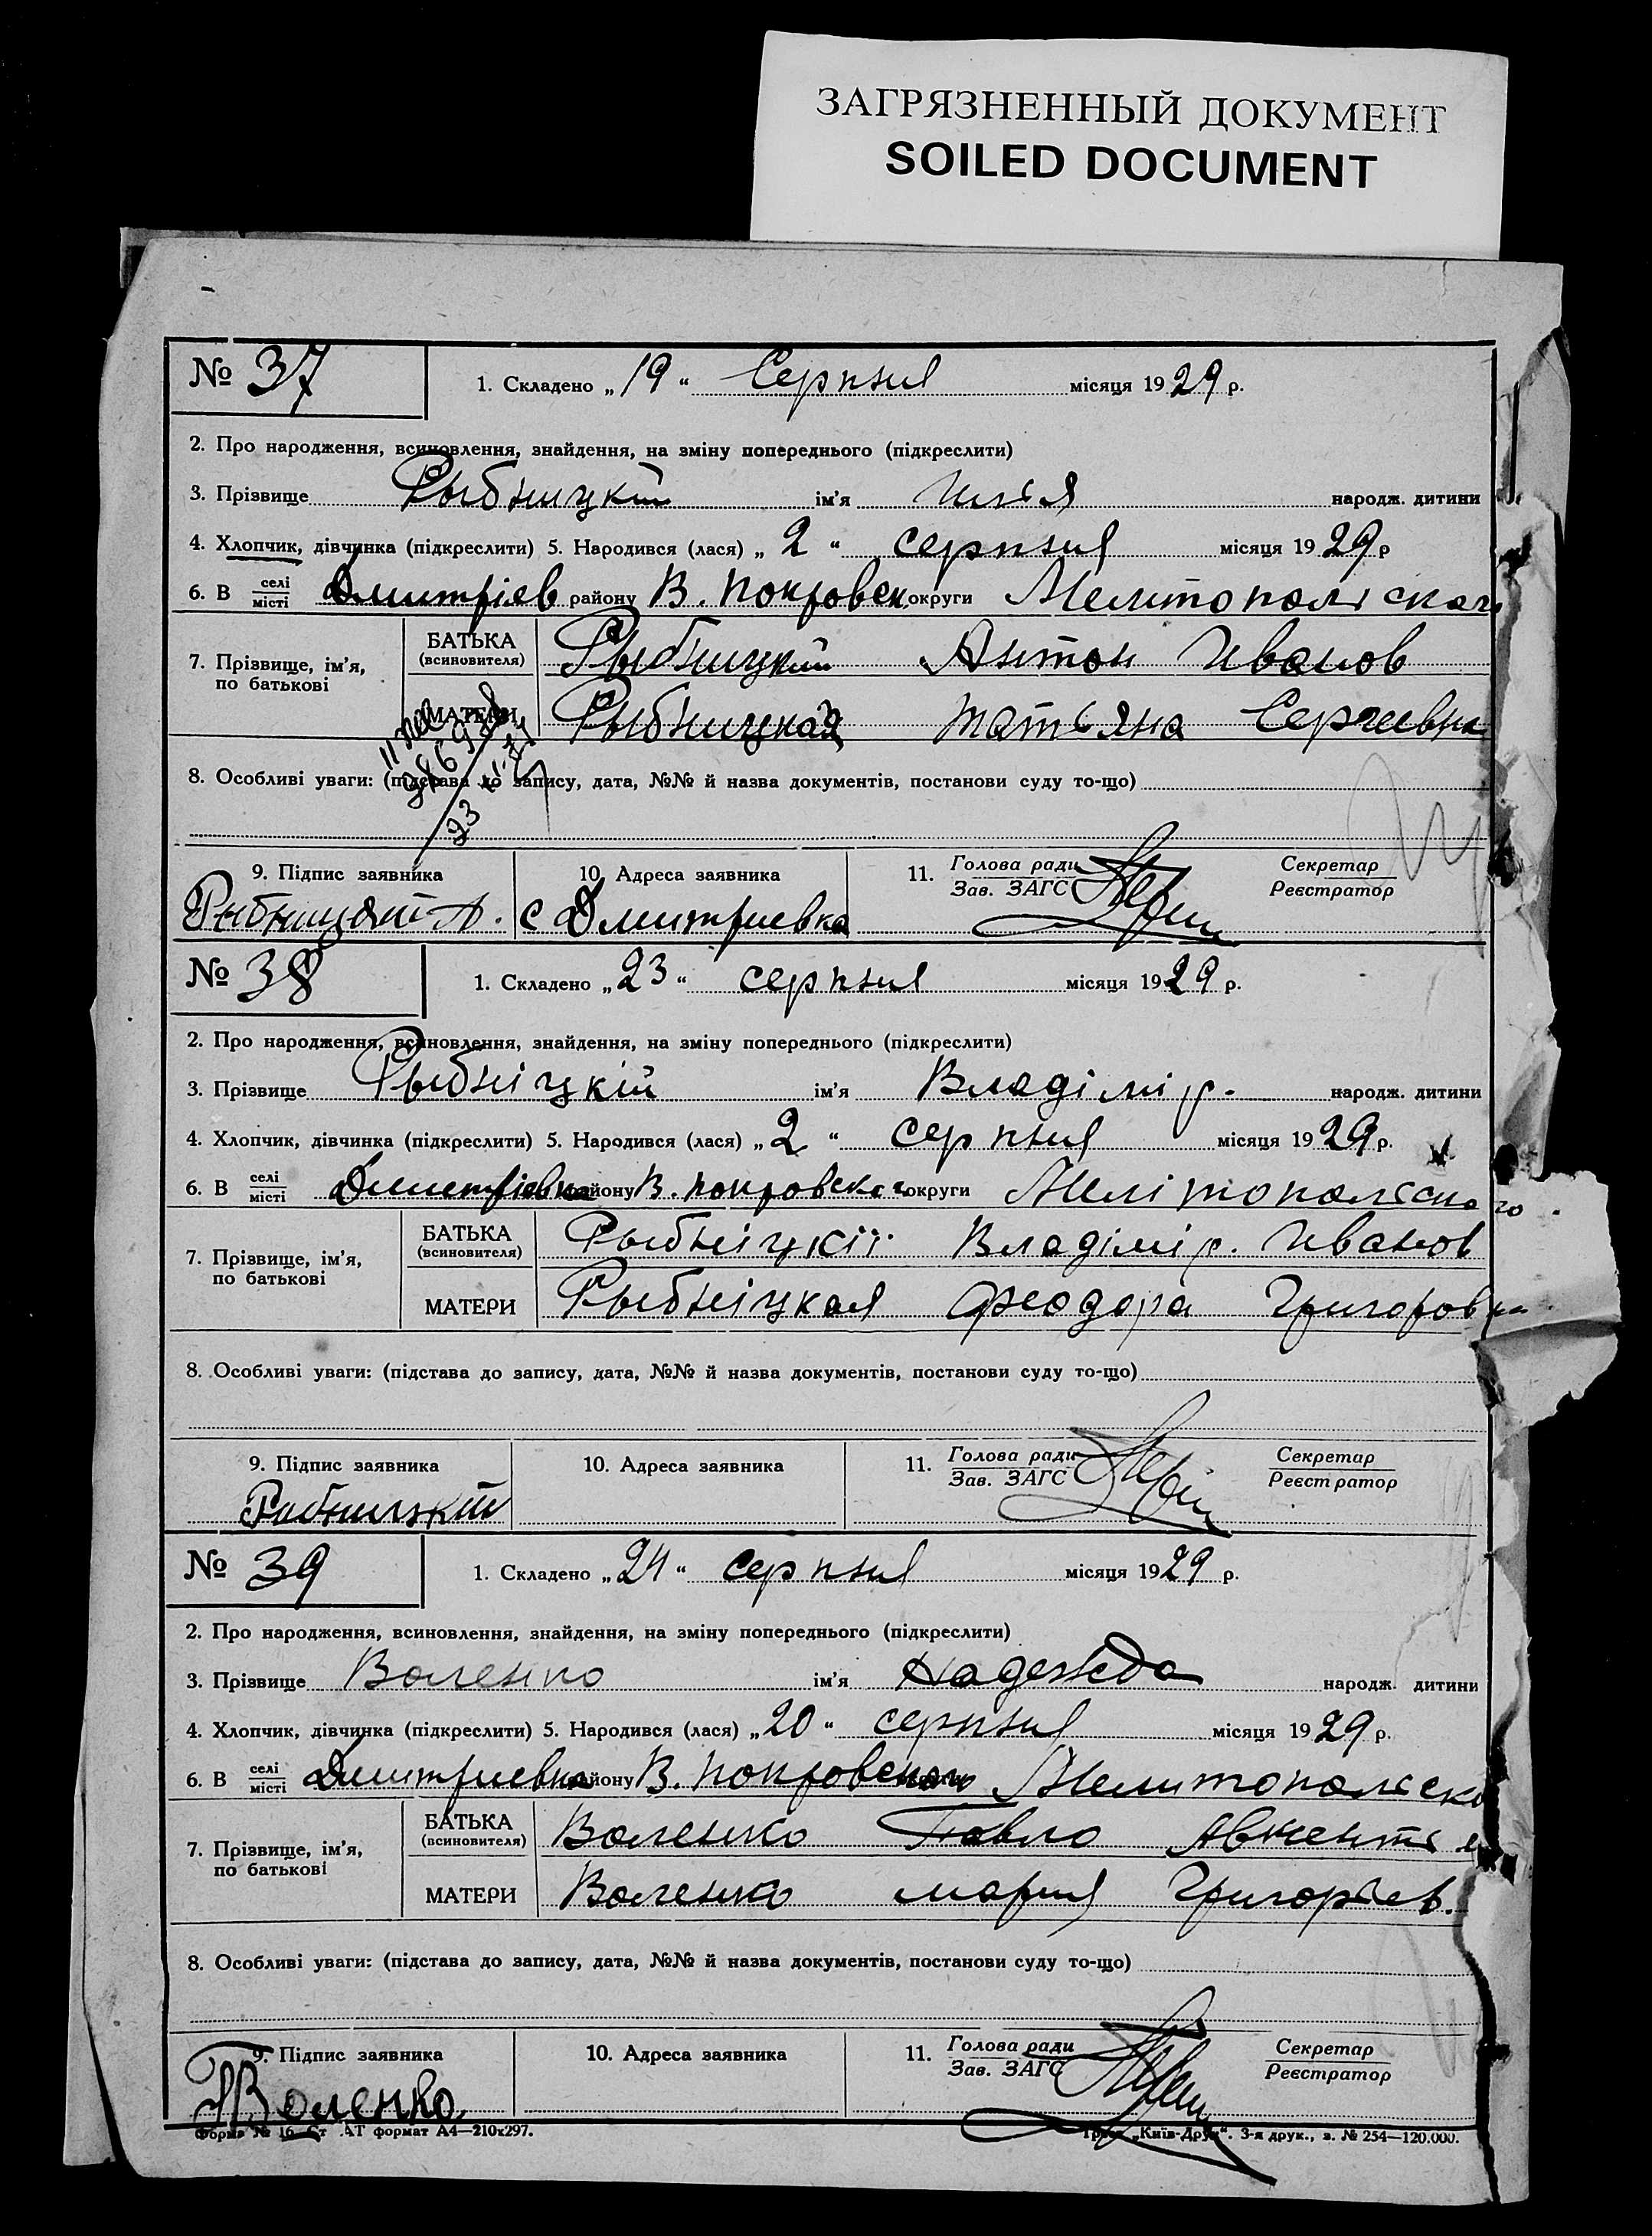 ЗАГРЯЗНЕННЫЙ ДОКУМЕНТ
SOILED DOCUMENT
№ 37
1. Складено „19“ Серпня місяця 1929 р.
2. Про народження, всиновлення, знайдення, на зміну попереднього (підкреслити)
3. Прізвище Рыбницкий ім'я Илья народж. дитини
4. Хлопчик, дівчинка (підкреслити) 5. Народився (лася) „2“ серпня місяця 1929 р
6. В селі місті Дмитріев району В. Покровск. округи Мелитопольског
7. Прізвище, ім'я, по батькові
БАТЬКА (всиновителя) Рыбницкий Антон Иванов
МАТЕРИ Рыбницкая Татьяна Сергеевна
8. Особливі уваги: (підстава до запису, дата, №№ й назва документів, постанови суду то-що)
9. Підпис заявника 10. Адреса заявника 11. Голова ради Зав. ЗАГС Секретар Реєстратор
Рыбницкий А. с Дмитриевка
№ 38
1. Складено „23“ серпня місяця 1929 р.
2. Про народження, всиновлення, знайдення, на зміну попереднього (підкреслити)
3. Прізвище Рыбніцкій ім'я Владімір. народж. дитини
4. Хлопчик, дівчинка (підкреслити) 5. Народився (лася) „2“ серпня місяця 1929 р.
6. В селі місті Дмитрієвка району В. Покровског округи Мелітопольского
7. Прізвище, ім'я, по батькові
БАТЬКА (всиновителя) Рыбніцкії Владімір. Иванов
МАТЕРИ Рыбніцкая Феодора Григоровна
8. Особливі уваги: (підстава до запису, дата, №№ й назва документів, постанови суду то-що)
9. Підпис заявника 10. Адреса заявника 11. Голова ради Зав. ЗАГС Секретар Реєстратор
Рыбницкий
№ 39
1. Складено „24“ серпня місяця 1929 р.
2. Про народження, всиновлення, знайдення, на зміну попереднього (підкреслити)
3. Прізвище Воленко ім'я Надежда народж. дитини
4. Хлопчик, дівчинка (підкреслити) 5. Народився (лася) „20“ серпня місяця 1929 р.
6. В селі місті Дмитриевка району В. Покровского Мелитопольско
7. Прізвище, ім'я, по батькові
БАТЬКА (всиновителя) Воленко Павло
МАТЕРИ Воленко Мария Григорьев.
8. Особливі уваги: (підстава до запису, дата, №№ й назва документів, постанови суду то-що)
9. Підпис заявника 10. Адреса заявника 11. Голова ради Зав. ЗАГС Секретар Реєстратор
Воленко
Форма № 16. Ст АТ формат А4—210х297. Трест „Київ-Друк“. 3-я друк., з. № 254—120.000.